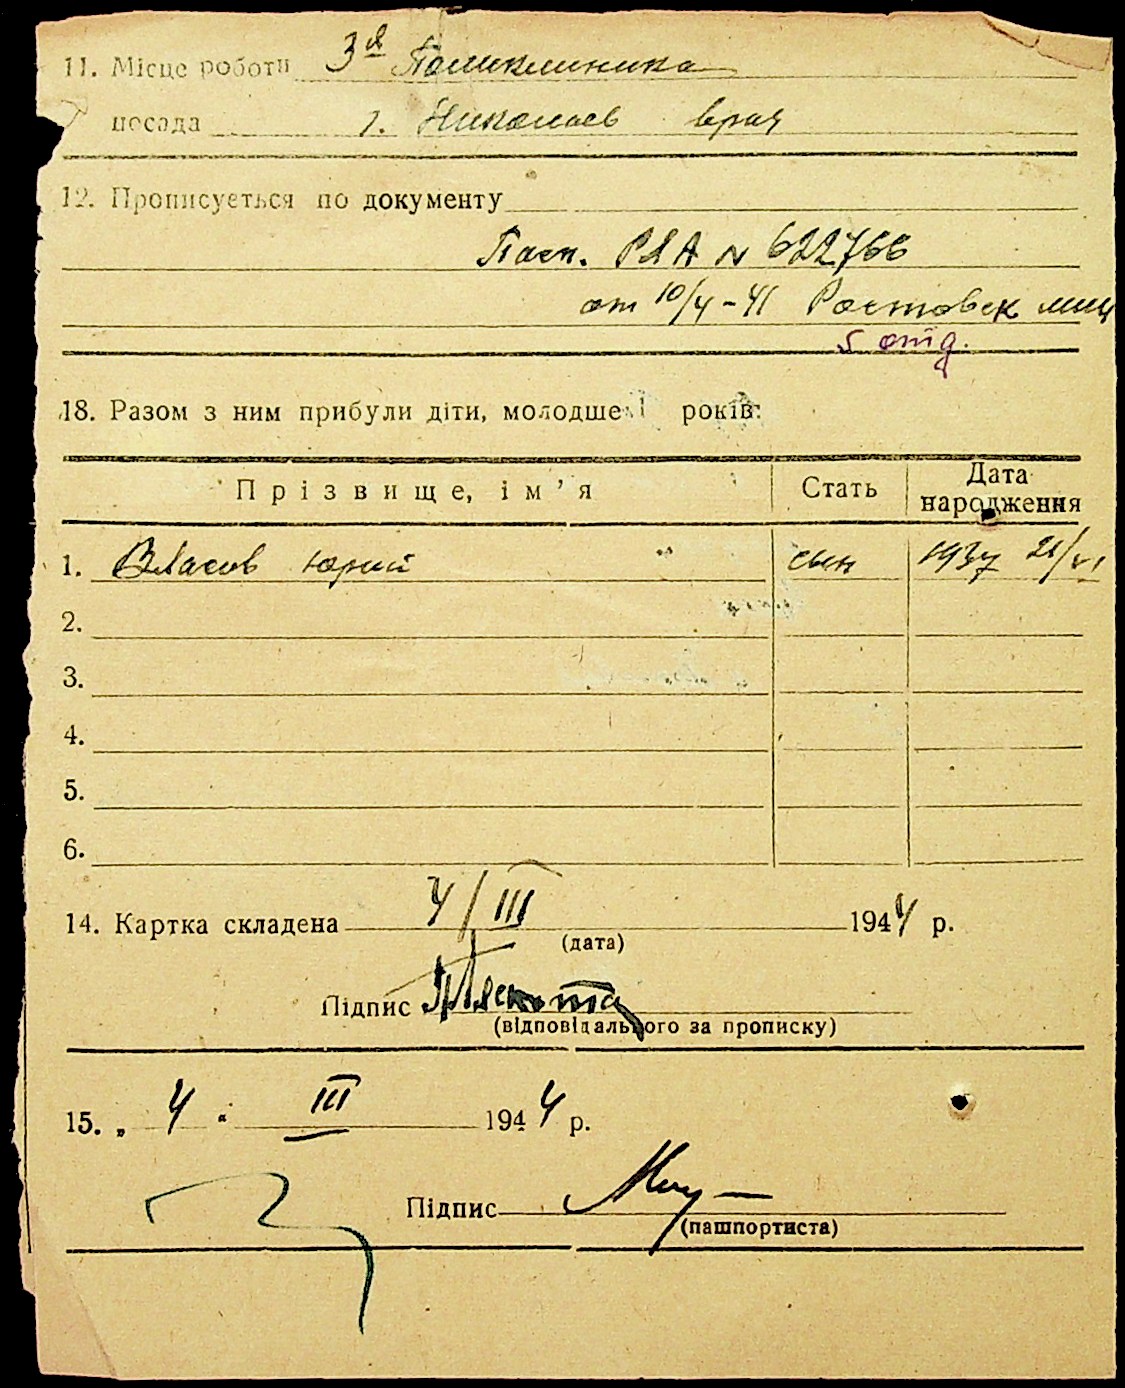 11. Місце роботи 3я Поликлиника
посада г. Николаев врач
12. Прописується по документу
Пасп. РЯА № 622766
от 10/4-41 Ростовск миц
5 отд.
18. Разом з ним прибули діти, молодше років:
Прізвище, ім'я Стать Дата народження
1. Власов Юрий сын 1937 21/VI
2.
3.
4.
5.
6.
14. Картка складена 4/III 1944 р.
(дата)
Підпис
(відповідального за прописку)
15. „ 4 " III 1944 р.
Підпис
(пашпортиста)